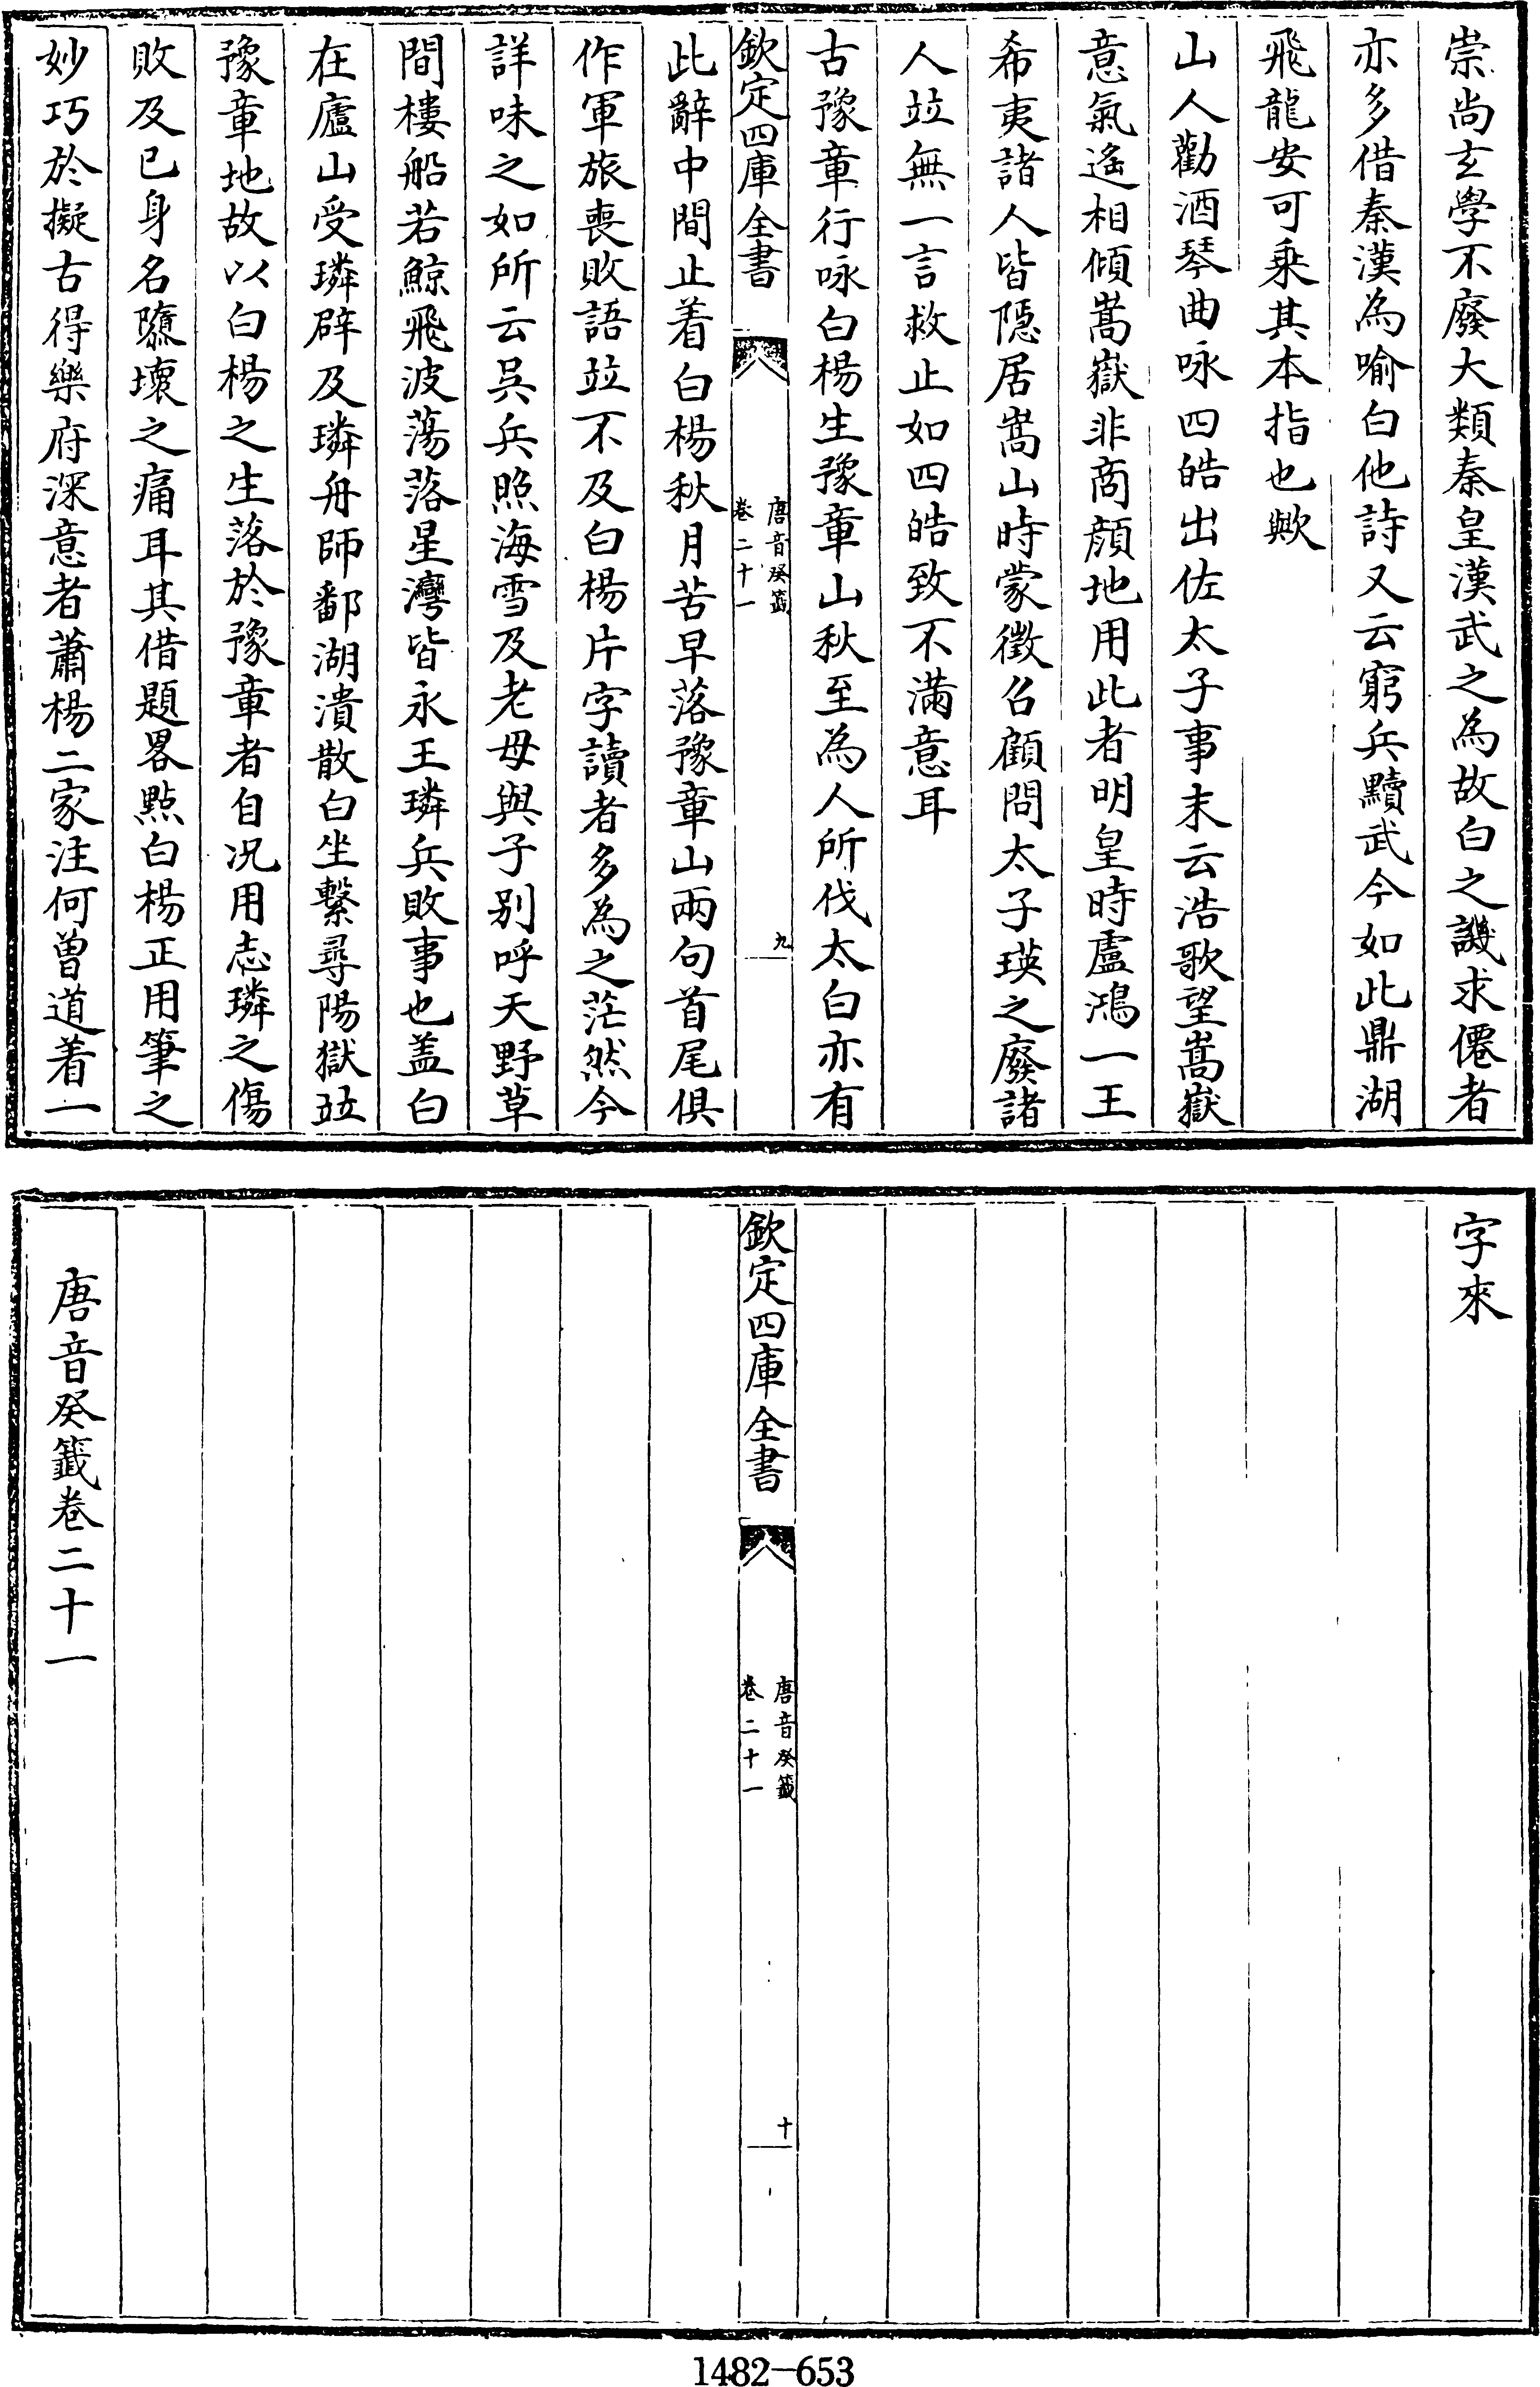 崇尚玄學不廢大類秦皇漢武之為故白之譏求僊者
亦多借秦漢為喻白他詩又云窮兵黷武今如此鼎湖
飛龍安可乗其本指也歟
山人勸酒琴曲咏四皓出佐太子事末云浩歌望嵩嶽
意氣遙相傾嵩嶽非商顔地用此者明皇時盧鴻一王
希夷諸人皆隱居嵩山時蒙徵召顧問太子瑛之廢諸
人竝無一言救止如四皓致不滿意耳
古豫章行咏白楊生豫章山秋至為人所伐太白亦有
欽定四庫全書
唐音癸籖
卷二十一
九
此辭中間止着白楊秋月苦早落豫章山兩句首尾俱
作軍旅喪敗語竝不及白楊片字讀者多為之茫然今
詳味之如所云吳兵照海雪及老母與子别呼天野草
間樓船若鯨飛波蕩落星灣皆永王璘兵敗事也盖白
在廬山受璘辟及璘舟師鄱湖潰散白坐繫尋陽獄竝
豫章地故以白楊之生落於豫章者自況用志璘之傷
敗及已身名隳壞之痛耳其借題畧㸃白楊正用筆之
妙巧於擬古得樂府深意者蕭楊二家注何曾道着一
字來
欽定四庫全書
唐音癸籖
卷二十一
十
唐音癸籖卷二十一
1482-653